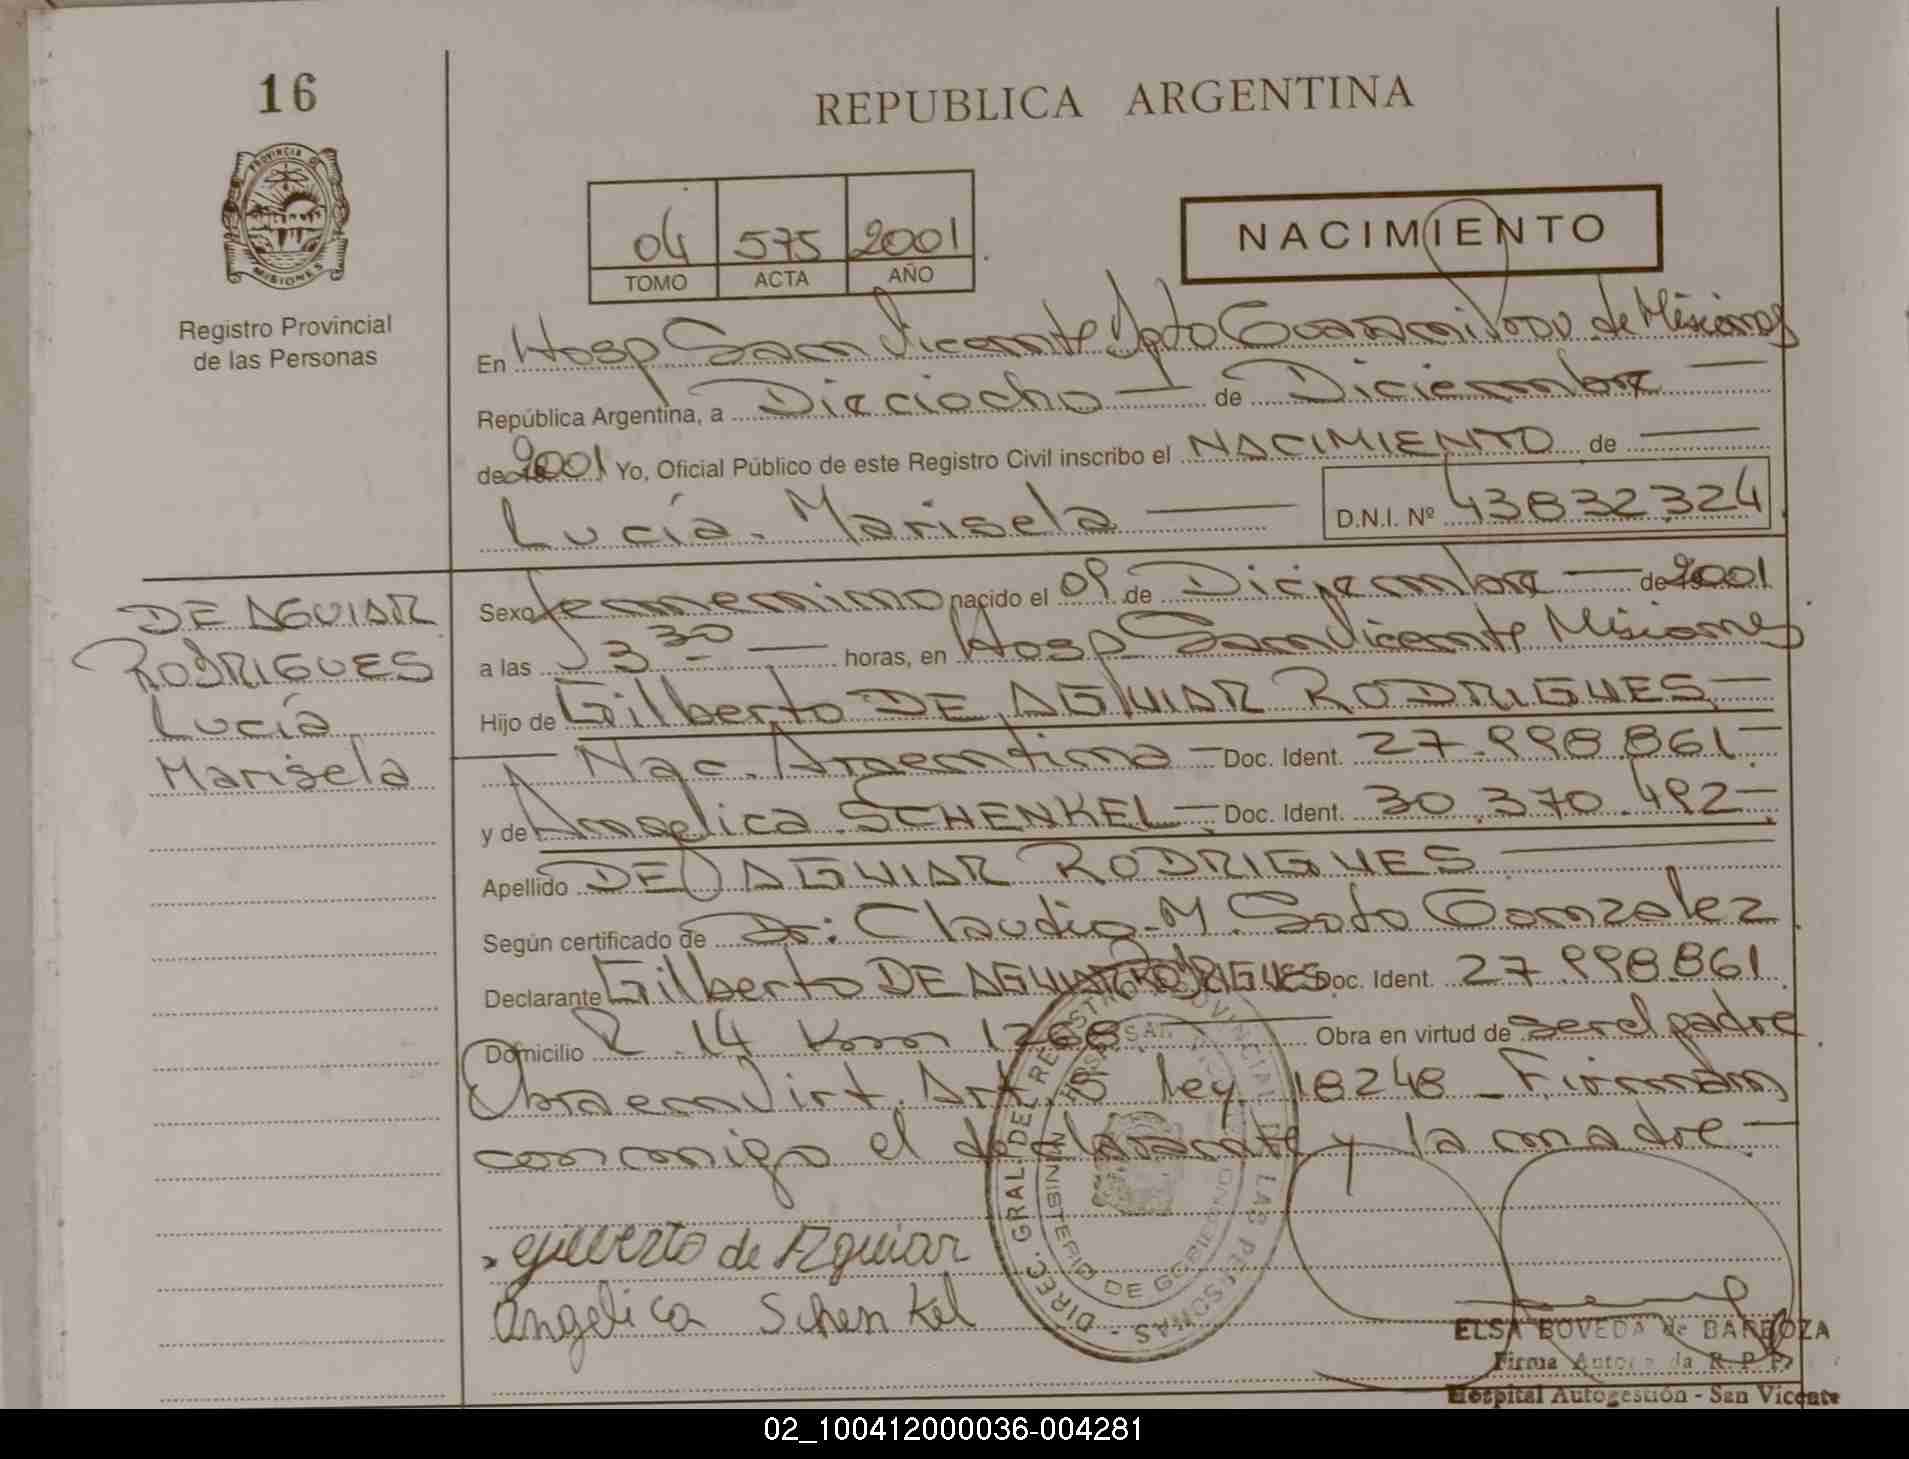 16
REPUBLICA ARGENTINA
PROVINCIA DE
MISIONES
Registro Provincial
de las Personas
04 575 2001
TOMO ACTA AÑO
NACIMIENTO
En Hosp San Vicente Dpto Guarani Prov. de Misiones
República Argentina, a Dieciocho de Diciembre
de 2001 Yo, Oficial Público de este Registro Civil inscribo el NACIMIENTO de
Lucía Marisela D.N.I. Nº 43832324
DE AGUIAR
RODRIGUES
Lucía
Marisela
Sexo femenino nacido el 09 de Diciembre de 2001
a las 3 30 horas, en Hosp San Vicente Misiones
Hijo de Gilberto DE AGUIAR RODRIGUES
Nac. Argentina Doc. Ident. 27.998.861
y de Angelica SCHENKEL Doc. Ident. 30.370.492
Apellido DE AGUIAR RODRIGUES
Según certificado de Dr: Claudio M. Soto Gonzalez
Declarante Gilberto DE AGUIAR RODRIGUES Doc. Ident. 27.998.861
Domicilio R. 14 Km 1268 Obra en virtud de ser el padre
Obra en Virt. Art. ley 18248 - Firman
conmigo el declarante y la madre
DIREC. GRAL. DEL REGISTRO PROVINCIAL DE LAS PERSONAS
MINISTERIO DE GOBIERNO
Gilberto de Aguiar
Angelica Schenkel
ELSA BOVEDA de BARBOZA
Firma Autorizada R.P.P.
Hospital Autogestión - San Vicente
02_100412000036-004281